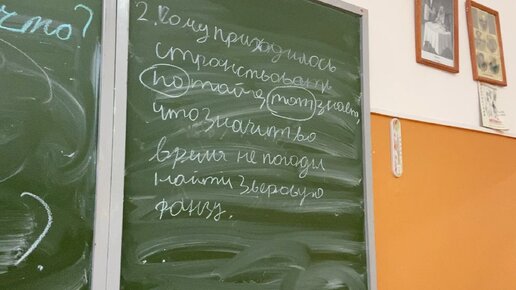 что?
2. Кому приходилось
странствовать
по тайге, тот знает,
что значит во
время непогоды
найти зверовую
фанзу.